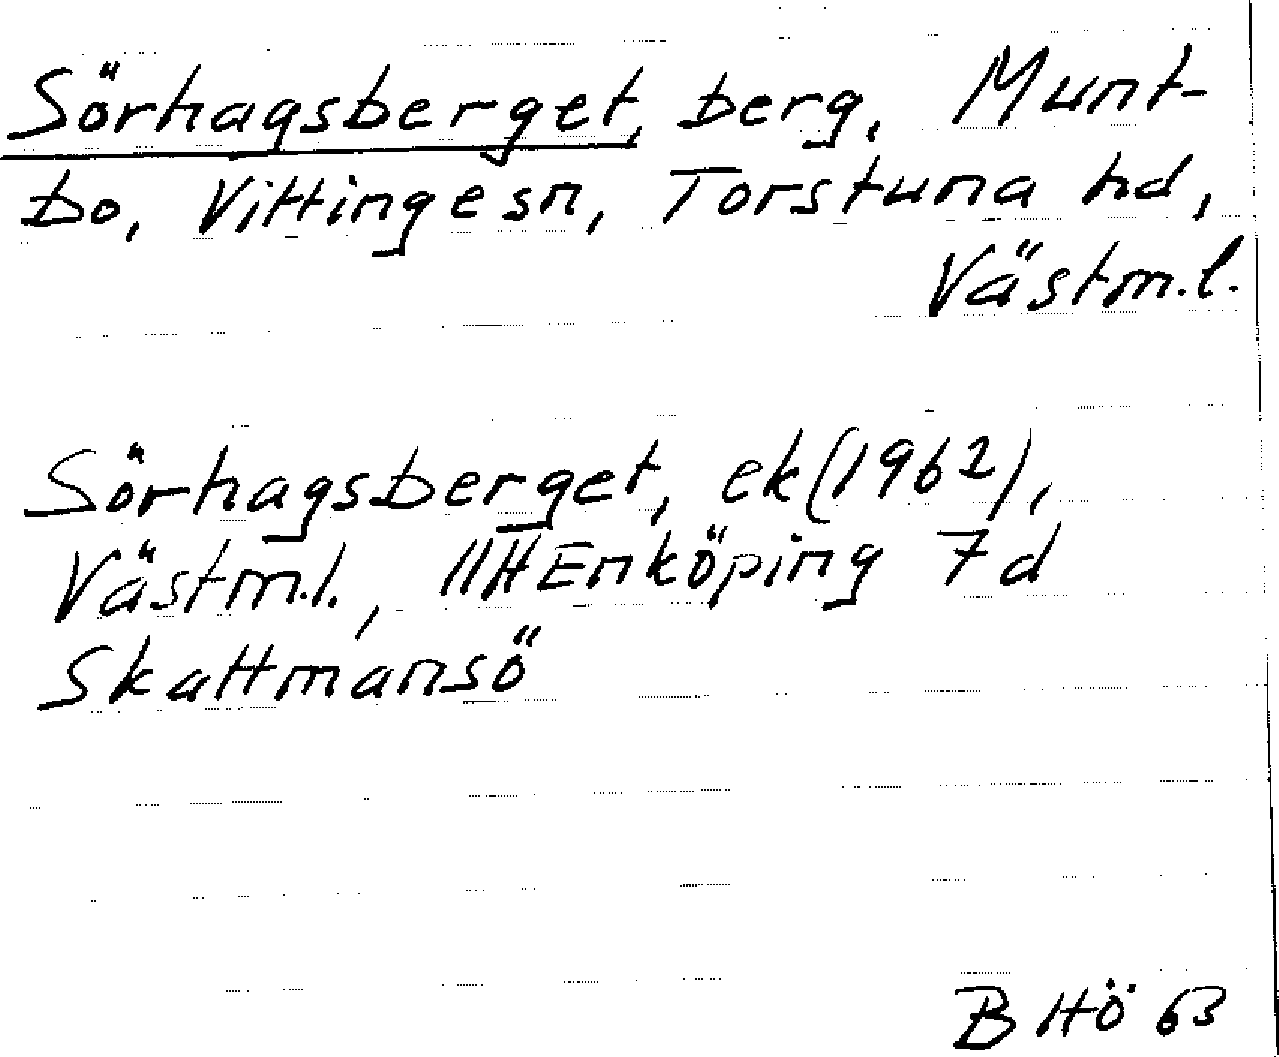 Sörhagsberget, berg, Munt-
bo, Vittinge sn, Torstuna hd,
Västm.l.
Sörhagsberget, ek (1962),
Västm.l., 11H Enköping 7d
Skattmansö
B Hö 63